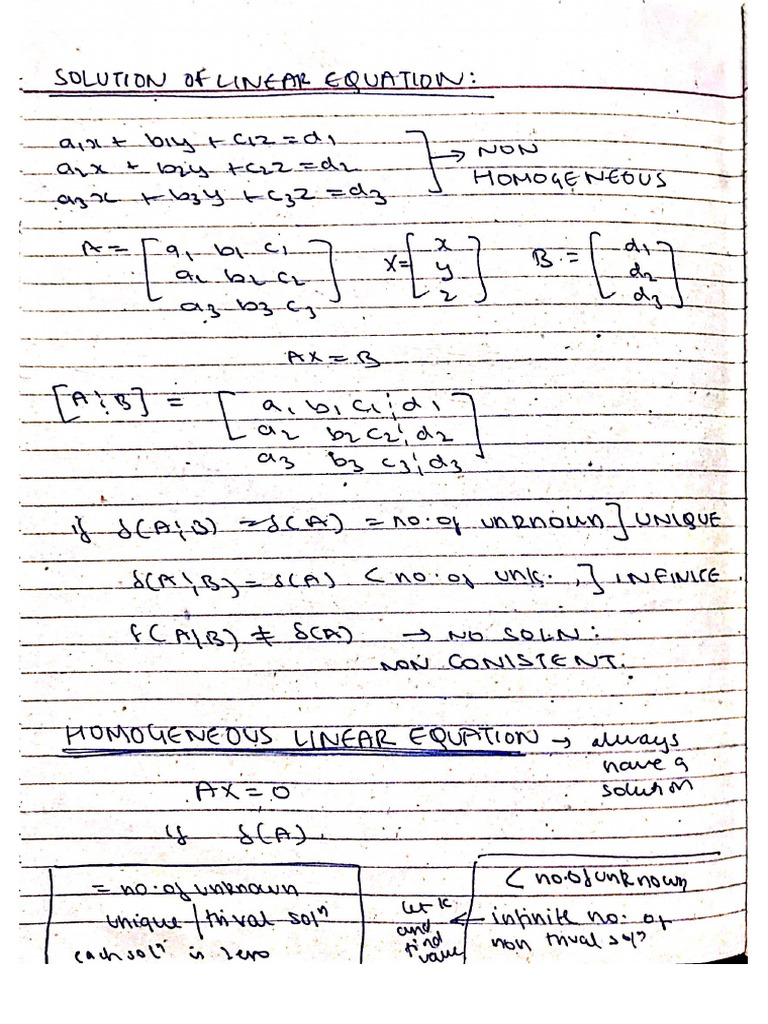 SOLUTION OF LINEAR EQUATION:
a1x + b1y + c1z = d1
a2x + b2y + c2z = d2
a3x + b3y + c3z = d3
→ NON HOMOGENEOUS
A = [a1 b1 c1 X = [x B = [d1
a2 b2 c2 y d2
a3 b3 c3] z] d3]
AX = B
[A¦B] = [a1 b1 c1¦d1
a2 b2 c2¦d2
a3 b3 c3¦d3]
if ρ(A¦B) = ρ(A) = no. of unknown] UNIQUE
ρ(A¦B) = ρ(A) < no. of unk. ] INFINITE
ρ(A¦B) ≠ ρ(A) → NO SOLN:
NON CONISTENT.
HOMOGENEOUS LINEAR EQUATION → always
have a
solution
AX = 0
if ρ(A)
= no. of unknown
unique / trival solⁿ
each solⁿ is zero
< no. of unknown
← infinite no. of
non trival solⁿ
let k
and
find
value